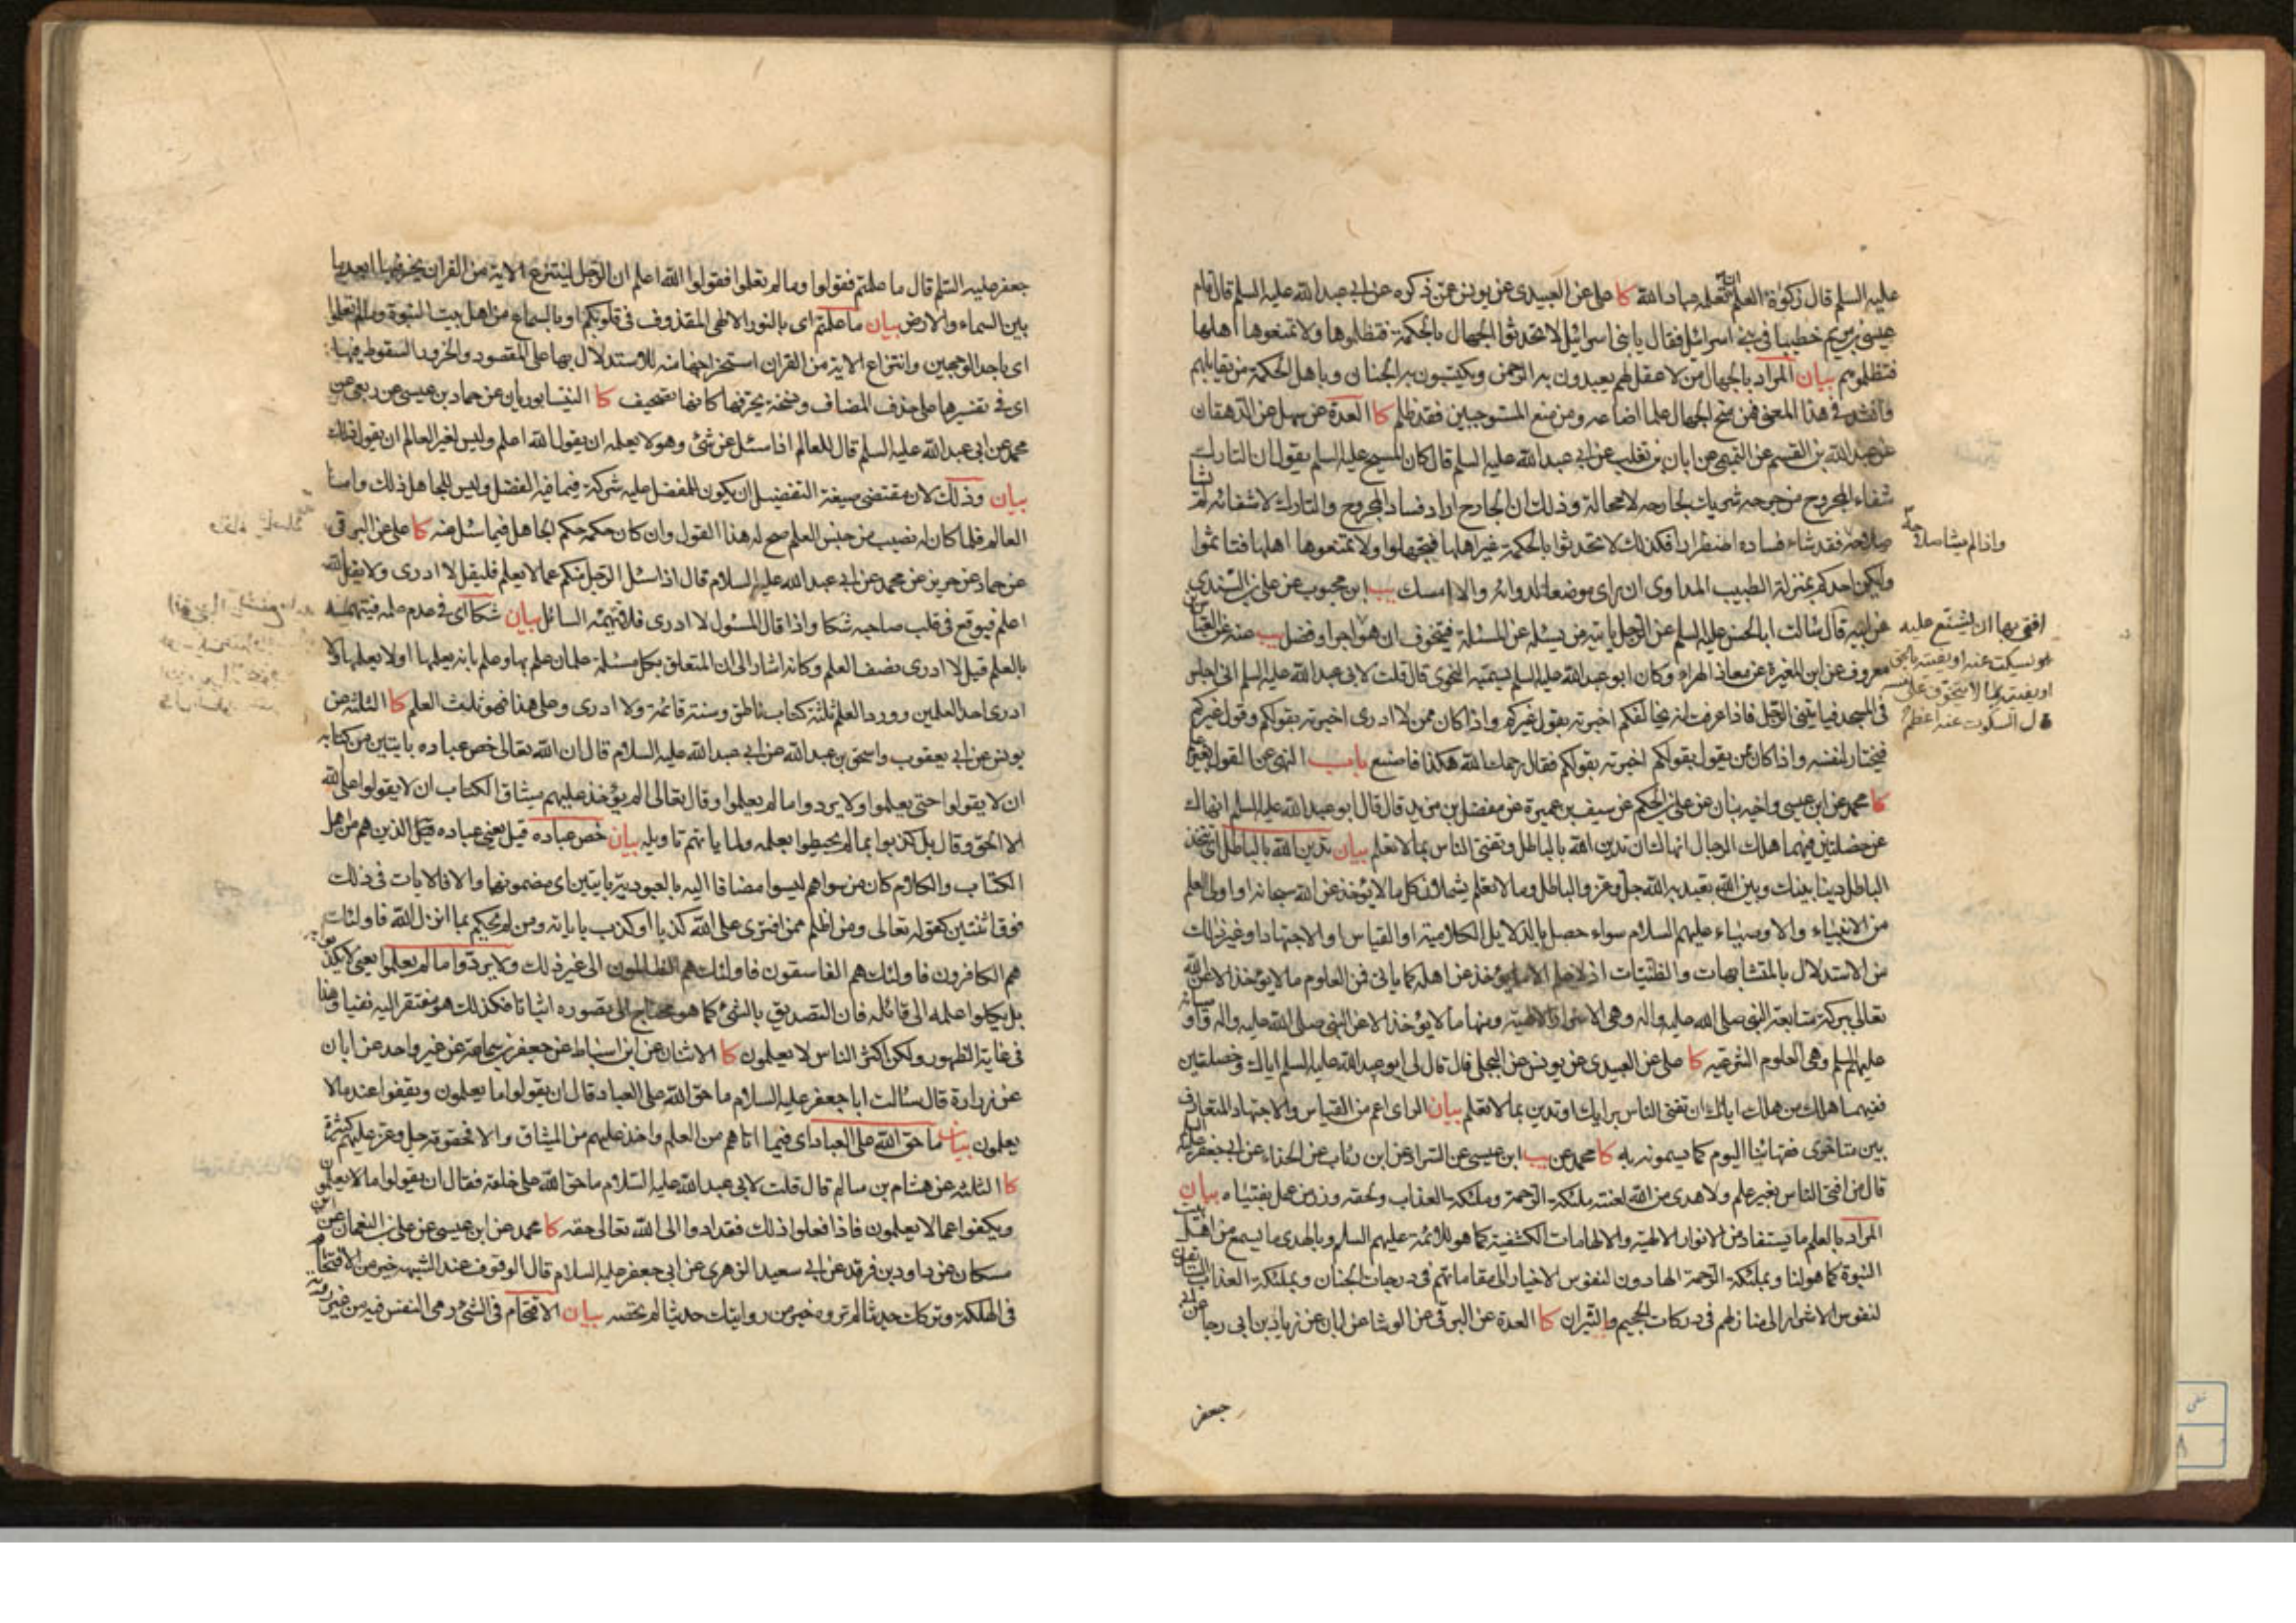 عليه السلم قال زكوة العلم ان تعلمه عباد الله كا على عن العبيدى عن يونس عمن ذكره عن ابى عبد الله عليه السلم قال قام
عيسى بن مريم خطيبا فى بنى اسرائيل فقال يا بنى اسرائيل لا تحدثوا الجهال بالحكمة فتظلموها ولا تمنعوها اهلها
فتظلموهم بيان المراد بالجهال من لا عقل لهم يعبدون به الرحمن ويكتسبون به الجنان وباهل الحكمة من يقابلهم
وانشد فى هذا المعنى فمن منح الجهال علما اضاعه ومن منع المستوجبين فقد ظلم كا العدة عن سهل عن الدهقان
عن عبد الله بن القسم عن ابان بن تغلب عن ابى عبد الله عليه السلم قال كان المسيح عليه السلم يقول ان التارك
شفاء المجروح من جرحه شريك لجارحه لا محالة وذلك ان الجارح اراد فساد المجروح والتارك لاشفائه لم يشا
صلاحه فقد شاء فساده اضطرارا فكذلك لا تحدثوا بالحكمة غير اهلها فتجهلوا ولا تمنعوها اهلها فتاثموا
واذا لم يشا صلاحه
وليكن احدكم بمنزلة الطبيب المداوى ان راى موضعا لدوائه والا امسك يب ابن محبوب عن على بن السندى
عن ابيه قال سالت ابا الحسن عليه السلم عن الرجل ياتيه من يسئله عن المسئلة فيتخوف ان هو
افتى بها ان يشنع عليه
فيسكت عنه او يفتيه بالحق
او يفتيه بما لا يتخوف على نفسه
قال السكوت عنه اعظم
اجرا وافضل يب عنه عن
معروف عن ابن المغيرة عن معاذ الهراء وكان ابو عبد الله عليه السلم يسميه النحوى قال قلت لابى عبد الله عليه السلم انى اجلس
فى المسجد فياتينى الرجل فاذا عرفت انه يخالفكم اخبرته بقول غيركم واذا كان ممن لا ادرى اخبرته بقولكم وقول غيركم
فيختار لنفسه واذا كان ممن يقول بقولكم اخبرته بقولكم فقال رحمك الله هكذا فاصنع باب النهى عن القول بغير علم
كا محمد عن ابن عيسى واخيه بنان عن على بن الحكم عن سيف بن عميرة عن مفضل بن مزيد قال قال ابو عبد الله عليه السلم انهاك
عن خصلتين فيهما هلك الرجال انهاك ان تدين الله بالباطل وتفتى الناس بما لا تعلم بيان تدين الله بالباطل اى تتخذ
الباطل دينا بينك وبين الله تعبد به الله جل وعز والباطل وما لا تعلم يشملان كل ما لا يؤخذ عن الله سبحانه او اولى العلم
من الانبياء والاوصياء عليهم السلام سواء حصل بالدلايل الكلامية او القياس او الاجتهاد او غير ذلك
من الاستدلال بالمتشابهات والظنيات اذ لا علم الا ما يؤخذ عن اهله كما ياتى فمن العلوم ما لا يؤخذ الا عن الله
تعالى ببركة متابعة النبى صلى الله عليه واله وهى الاسرار الالهية ومنها ما لا يؤخذ الا عن النبى صلى الله عليه واله واوصيائه
عليهم السلم وهى العلوم الشرعية كا على عن العبيدى عن يونس عن البجلى قال قال لى ابو عبد الله عليه السلم اياك وخصلتين
ففيهما هلك من هلك اياك ان تفتى الناس برايك او تدين بما لا تعلم بيان الراى اعم من القياس والاجتهاد المتعارف
بين متاخرى فقهائنا اليوم كما يسمونه به كا محمد عن يب ابن عيسى عن السراد عن ابن رئاب عن الحذاء عن ابى جعفر عليه السلم
قال من افتى الناس بغير علم ولا هدى من الله لعنته ملئكة الرحمة وملئكة العذاب ولحقه وزر من عمل بفتياه بيان
المراد بالعلم ما يستفاد من الانوار الالهية والالهامات الكشفية كما هو للائمة عليهم السلم وبالهدى ما يسمع من اهل بيت
النبوة كما هو لنا وبملئكة الرحمة الهادون لنفوس الاخيار الى مقاماتهم فى درجات الجنان وبملئكة العذاب السائقون
لنفوس الاشرار الى منازلهم فى دركات الجحيم والنيران كا العدة عن البرقى عن الوشا عن ابان عن زياد بن ابى رجا عن ابى
جعفر
جعفر عليه السلم قال ما علمتم فقولوا وما لم تعلموا فقولوا الله اعلم ان الرجل لينتزع الاية من القران يخر فيها ابعد ما
بين السماء والارض بيان ما علمتم اى بالنور الالهى المقذوف فى قلوبكم او بالسماع من اهل بيت النبوة وما لم تعلموا
اى باحد الوجهين وانتزاع الاية من القران استخراجها منه للاستدلال بها على المقصود والخرور السقوط فيها
اى فى تفسيرها على حذف المضاف وفى نسخة يحرفها كانها تصحيف كا النيسابوريان عن حماد بن عيسى عن ربعى عن
محمد عن ابى عبد الله عليه السلم قال للعالم اذا سئل عن شئ وهو لا يعلمه ان يقول الله اعلم وليس لغير العالم ان يقول ذلك
بيان وذلك لان مقتضى صيغة التفضيل ان يكون للمفضل عليه شركة فيما فيه الفضل وليس للجاهل ذلك واما
العالم فلما كان له نصيب من جنس العلم صح له هذا القول وان كان حكمه حكم الجاهل فيما سئل عنه كا على عن البرقى
عن حماد عن حريز عن محمد عن ابى عبد الله عليه السلام قال اذا سئل الرجل منكم عما لا يعلم فليقل لا ادرى ولا يقل الله
اعلم فيوقع فى قلب صاحبه شكا واذا قال المسئول لا ادرى فلا يتهمه السائل بيان شكا اى فى عدم علمه فيتهمه
بالعلم قيل لا ادرى نصف العلم وكانه اشار الى ان المتعلق بكل مسئلة علمان علم بها وعلم بانه يعلمها او لا يعلمها ولا
ادرى احد العلمين وورد العلم ثلثة كتاب ناطق وسنة قائمة ولا ادرى وعلى هذا فهو ثلث العلم كا الثلثة عن
يونس عن ابى يعقوب واسحق بن عبد الله عن ابى عبد الله عليه السلام قال ان الله تعالى خص عباده بايتين من كتابه
ان لا يقولوا حتى يعلموا ولا يردوا ما لم يعلموا وقال تعالى الم يؤخذ عليهم ميثاق الكتاب ان لا يقولوا على الله
الا الحق وقال بل كذبوا بما لم يحيطوا بعلمه ولما ياتهم تاويله بيان خص عباده قيل يعنى عباده الذين هم من اهل
الكتاب والكلام كان من سواهم ليسوا مضافا اليه بالعبودية بايتين اى مضمونهما والا فالايات فى ذلك
فوق اثنتين كقوله تعالى ومن اظلم ممن افترى على الله كذبا او كذب باياته ومن لم يحكم بما انزل الله فاولئك
هم الكافرون فاولئك هم الفاسقون فاولئك هم الظالمون الى غير ذلك ولا يردوا ما لم يعلموا يعنى لا يكذبوا به
بل يكلوا علمه الى قائله فان التصديق بالشئ كما هو محتاج الى تصوره اثباتا فكذلك هو مفتقر اليه نفيا وهذا
فى غاية الظهور ولكن اكثر الناس لا يعلمون كا الاثنان عن ابن اسباط عن جعفر بن سماعة عن غير واحد عن ابان
عن زرارة قال سالت ابا جعفر عليه السلام ما حق الله على العباد قال ان يقولوا ما يعلمون ويقفوا عند ما لا
يعلمون بيان ما حق الله على العباد اى فيما اتاهم من العلم واخذ عليهم من الميثاق والا فحقوقه جل وعز عليهم كثيرة
كا الثلثة عن هشام بن سالم قال قلت لابى عبد الله عليه السلام ما حق الله على خلقه فقال ان يقولوا ما لا يعلمون
ويكفوا عما لا يعلمون فاذا فعلوا ذلك فقد ادوا الى الله تعالى حقه كا محمد عن ابن عيسى عن على بن النعمان عن ابن
مسكان عن داود بن فرقد عن ابى سعيد الزهرى عن ابى جعفر عليه السلام قال الوقوف عند الشبهة خير من الاقتحام
فى الهلكة وتركك حديثا لم تروه خير من روايتك حديثا لم تحصه بيان الاقتحام فى الشئ رمى النفس فيه من غير روية